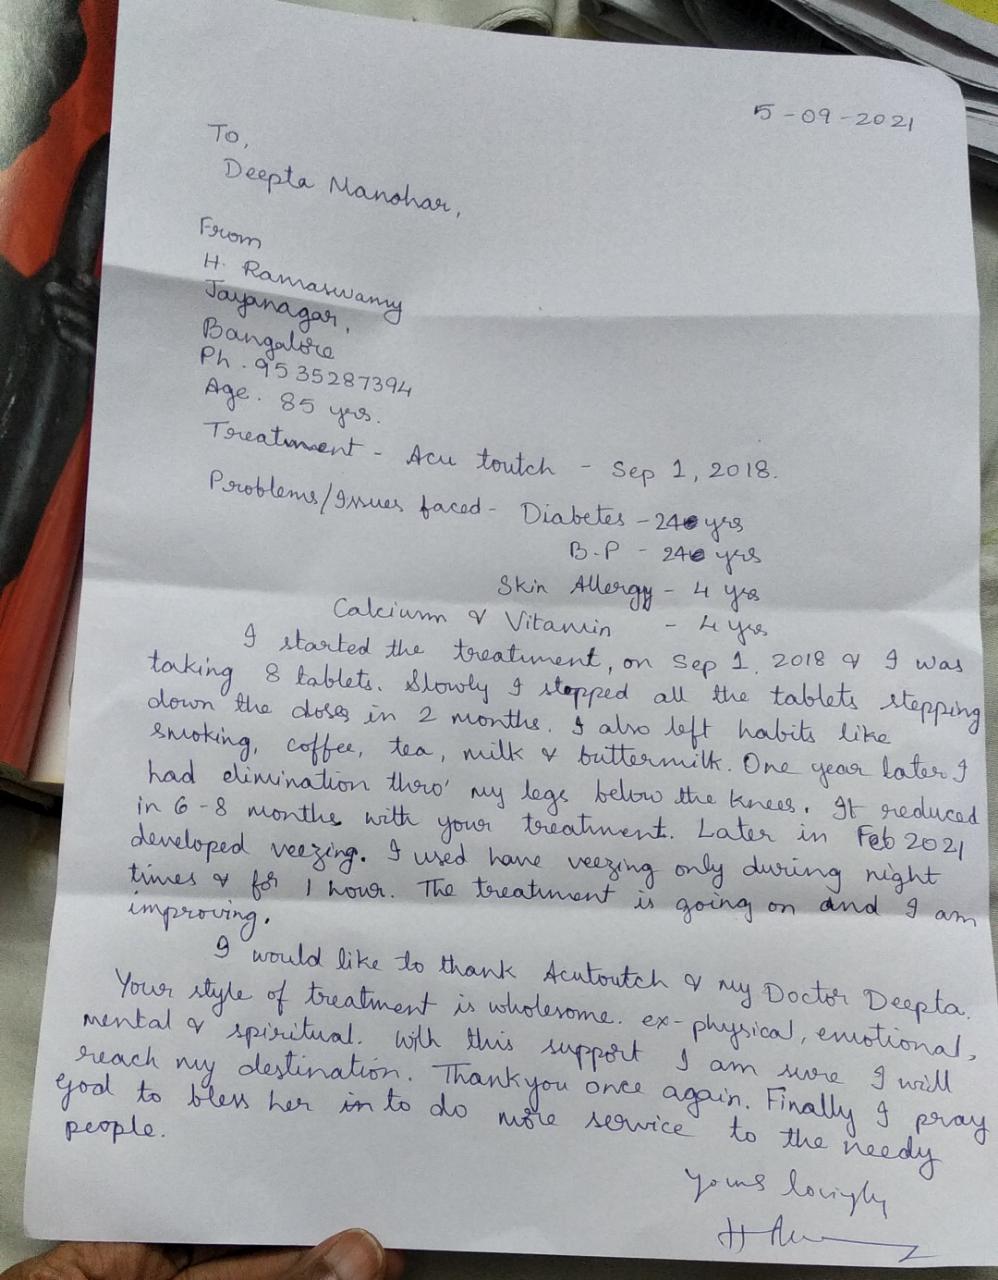 5-09-2021
To,
Deepta Manohar,
From
H. Ramaswamy
Jayanagar,
Bangalore
Ph. 9535287394
Age. 85 yrs.
Treatment - Acu toutch - Sep 1, 2018.
Problems/Issues faced - Diabetes - 24 yrs
B.P - 24 yrs
Skin Allergy - 4 yrs
Calcium & Vitamin - 4 yrs
I started the treatment, on Sep 1, 2018 & I was
taking 8 tablets. Slowly I stopped all the tablets stepping
down the doses in 2 months. I also left habits like
smoking, coffee, tea, milk & buttermilk. One year later I
had elimination thro' my legs below the knees. It reduced
in 6-8 months with your treatment. Later in Feb 2021
developed veezing. I used have veezing only during night
times & for 1 hour. The treatment is going on and I am
improving.
I would like to thank Acutoutch & my Doctor Deepta.
Your style of treatment is wholesome. ex- physical, emotional,
mental & spiritual. With this support I am sure I will
reach my destination. Thankyou once again. Finally I pray
god to bless her to do more service to the needy
people.
Yours lovingly